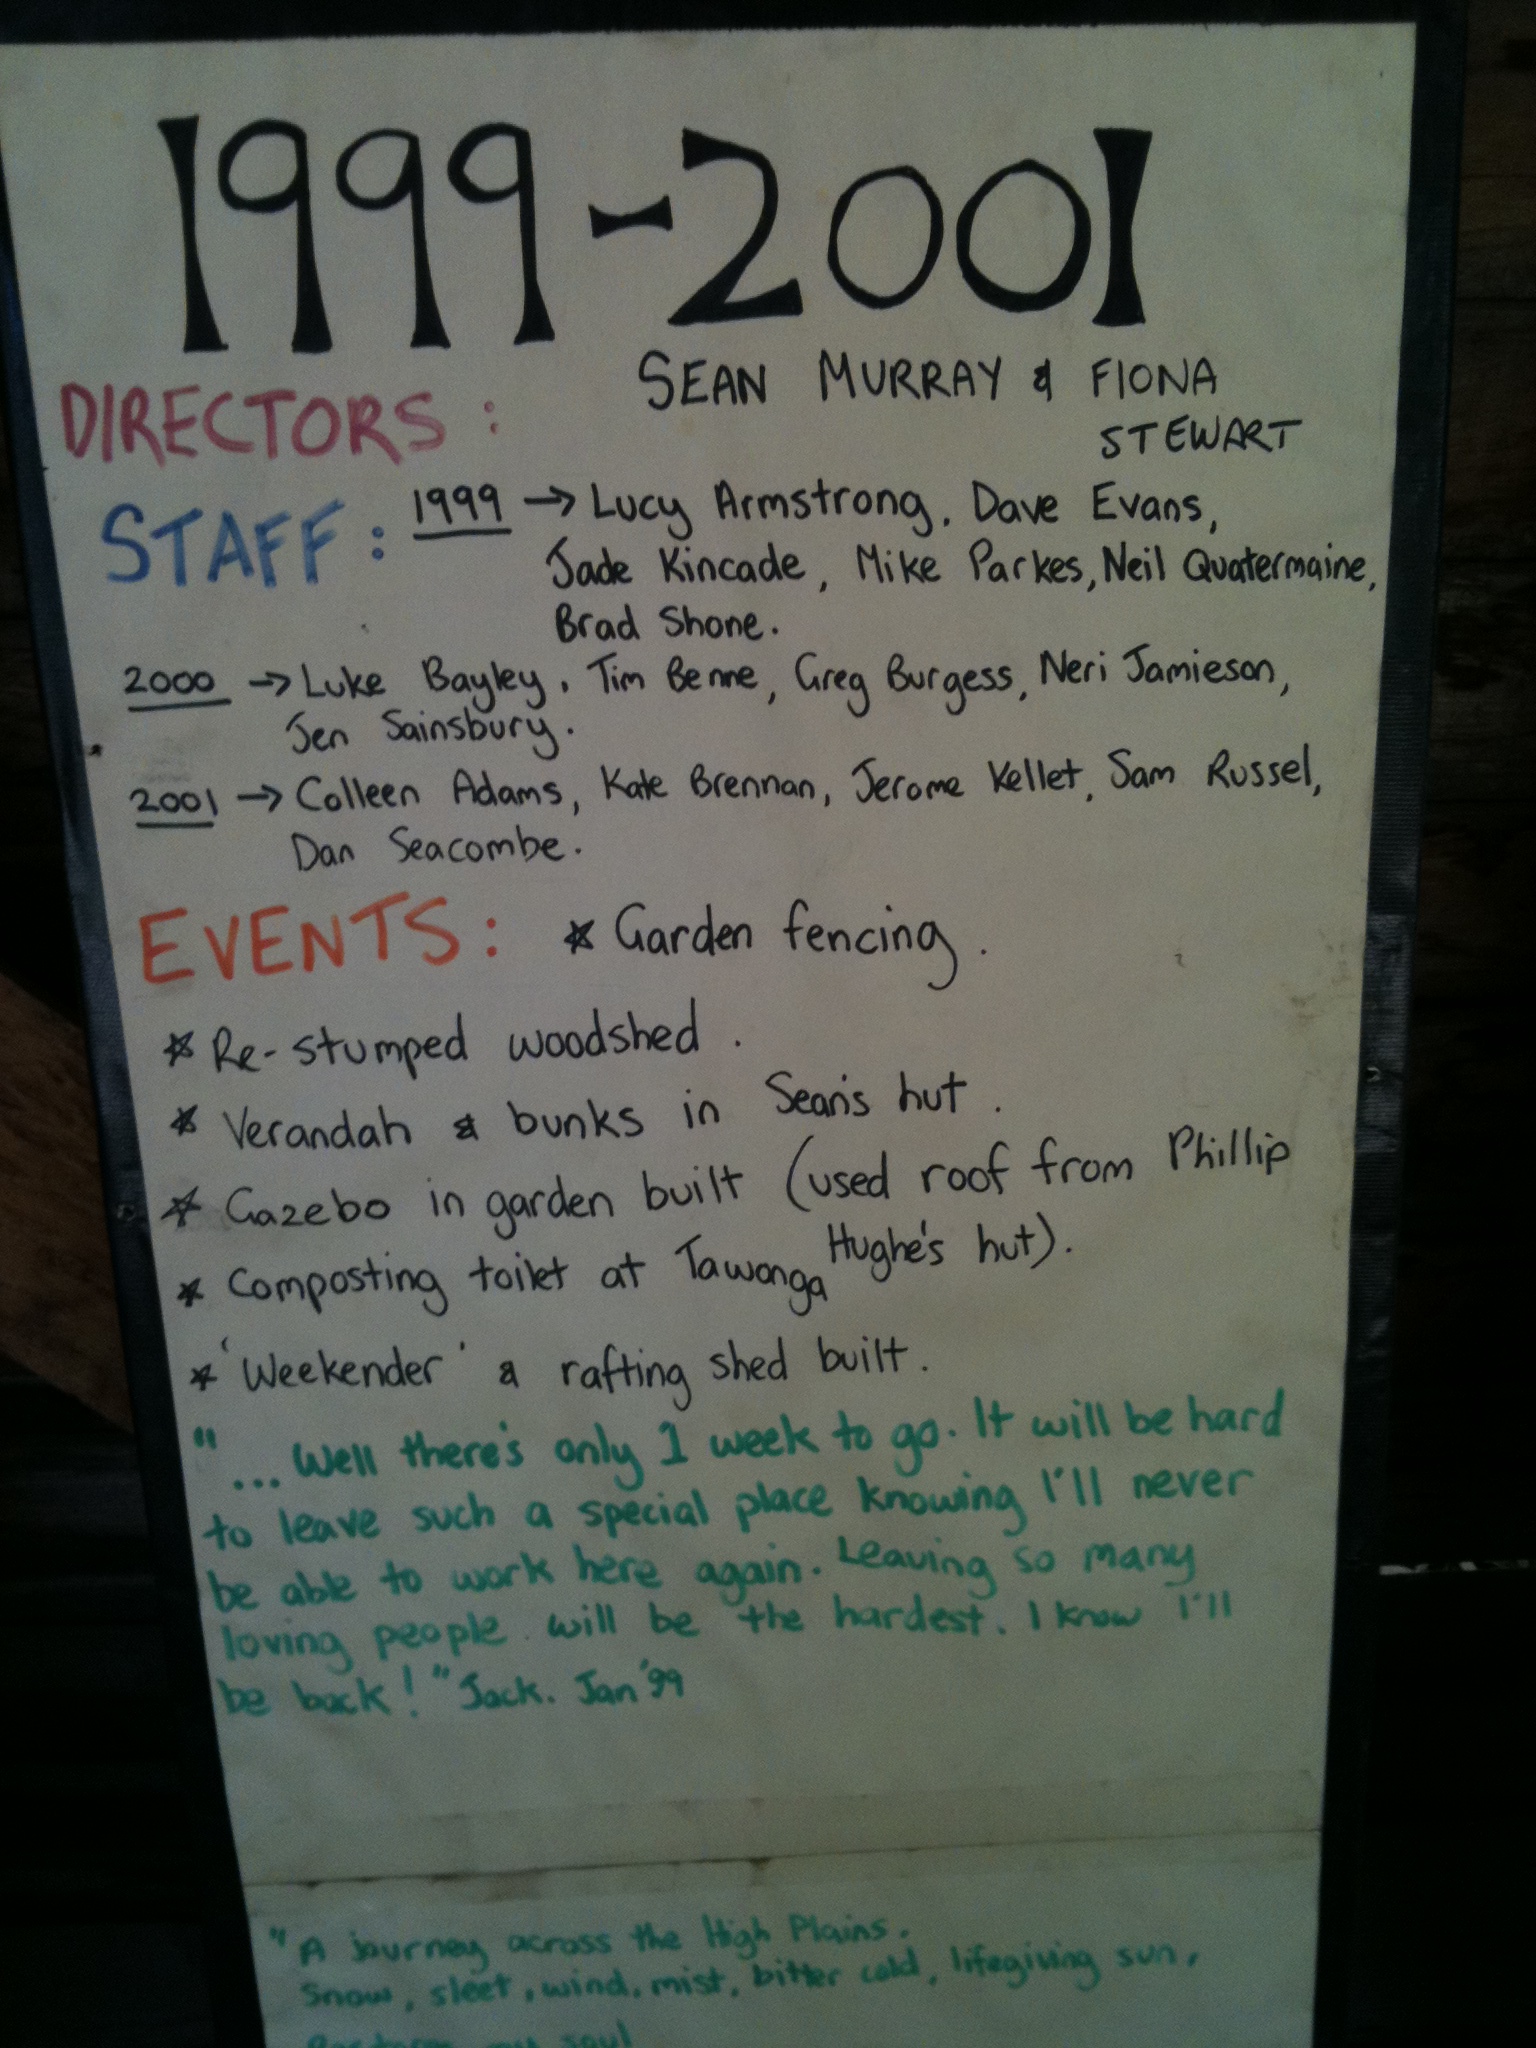 1999-2001
DIRECTORS: SEAN MURRAY & FIONA
STEWART
STAFF: 1999 → Lucy Armstrong, Dave Evans,
Jade Kincade, Mike Parkes, Neil Quatermaine,
Brad Shone.
2000 → Luke Bayley, Tim Benne, Greg Burgess, Neri Jamieson,
Jen Sainsbury.
2001 → Colleen Adams, Kate Brennan, Jerome Kellet, Sam Russel,
Dan Seacombe.
EVENTS: * Garden fencing.
* Re-stumped woodshed.
* Verandah & bunks in Sean's hut.
* Gazebo in garden built (used roof from Phillip
Hughe's hut).
* Composting toilet at Tawonga
* 'Weekender' & rafting shed built.
"... Well there's only 1 week to go. It will be hard
to leave such a special place knowing I'll never
be able to work here again. Leaving so many
loving people will be the hardest. I know I'll
be back!" Jack. Jan '99
"A journey across the High Plains.
Snow, sleet, wind, mist, bitter cold, lifegiving sun.
my soul